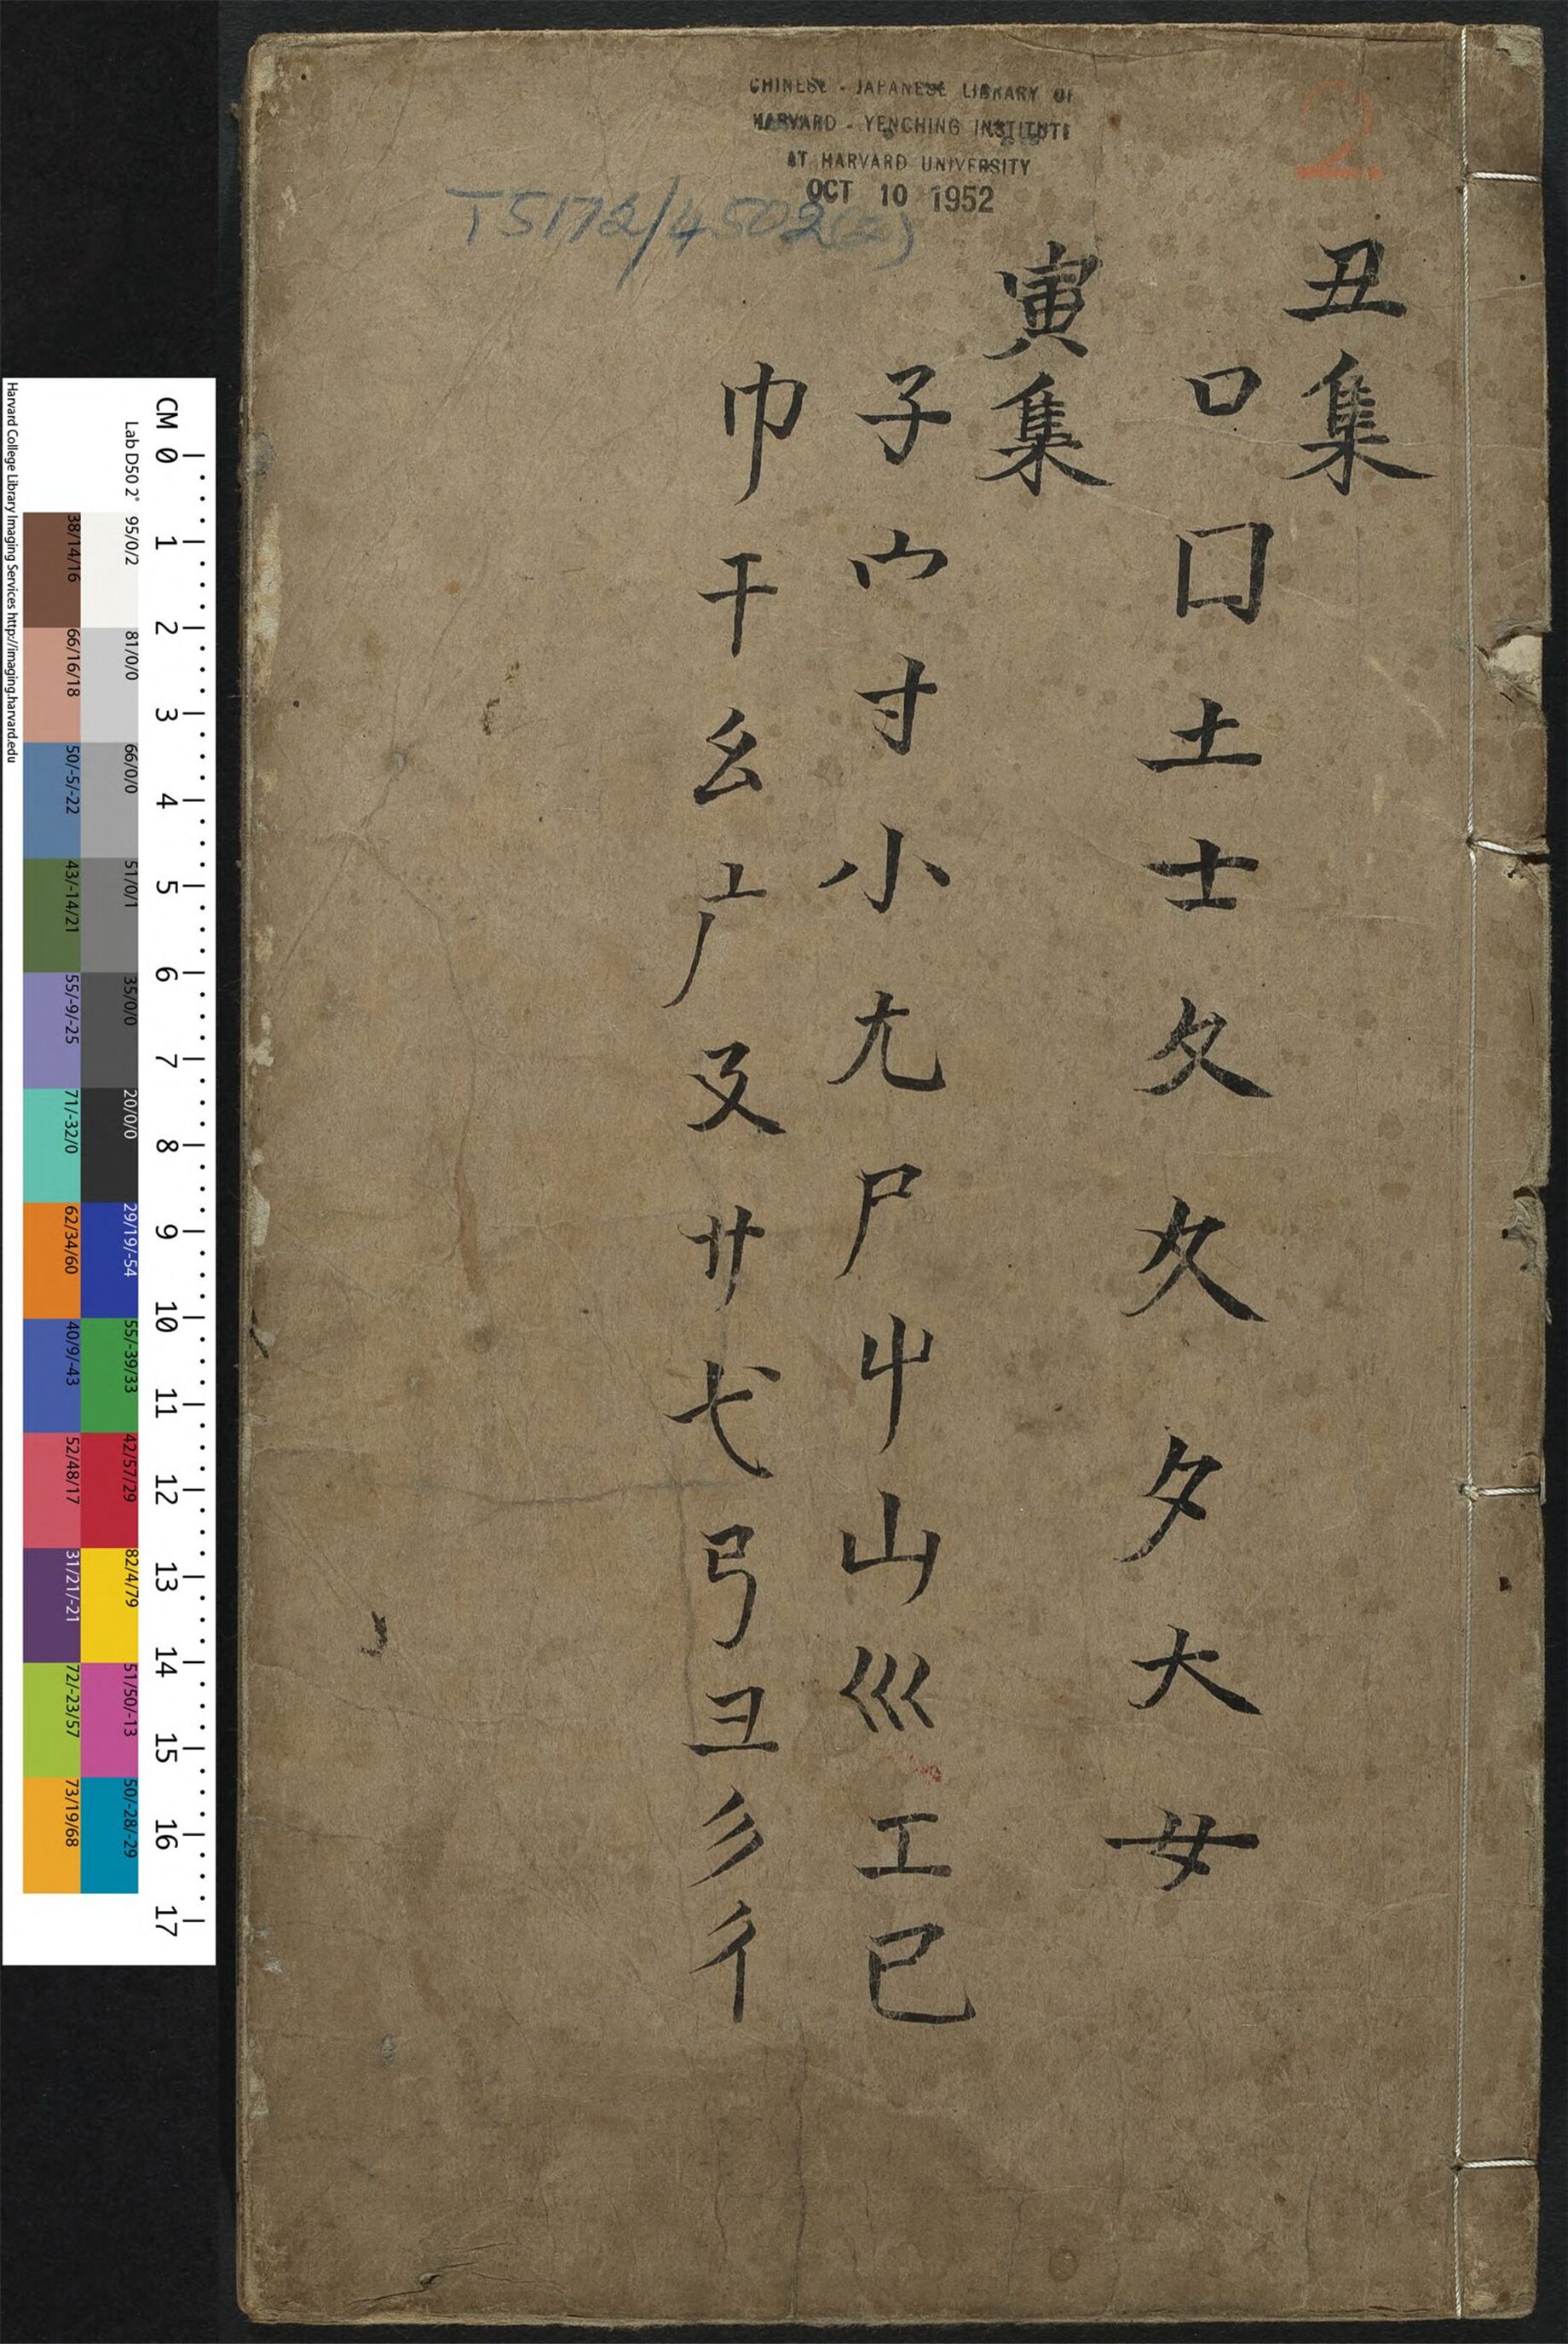 CHINESE - JAPANESE LIBRARY OF
HARVARD - YENCHING INSTITUTE
AT HARVARD UNIVERSITY
OCT 10 1952
2
T5172/4502(2)
丑集
口囗土士夂夊夕大女
寅集
子宀寸小尢尸屮山巛工已
巾干幺广廴廾弋弓彐彡彳
CM 0 1 2 3 4 5 6 7 8 9 10 11 12 13 14 15 16 17
Lab D50 2° 95/0/2 81/0/0 66/0/0 51/0/1 35/0/0 20/0/0 29/19/-54 55/-39/33 42/57/29 82/4/79 51/50/-13 50/-28/-29
38/14/16 66/16/18 50/-5/-22 43/-14/21 55/-9/-25 71/-32/0 62/34/60 40/9/-43 52/48/17 31/21/-21 72/-23/57 73/19/68
Harvard College Library Imaging Services http://imaging.harvard.edu